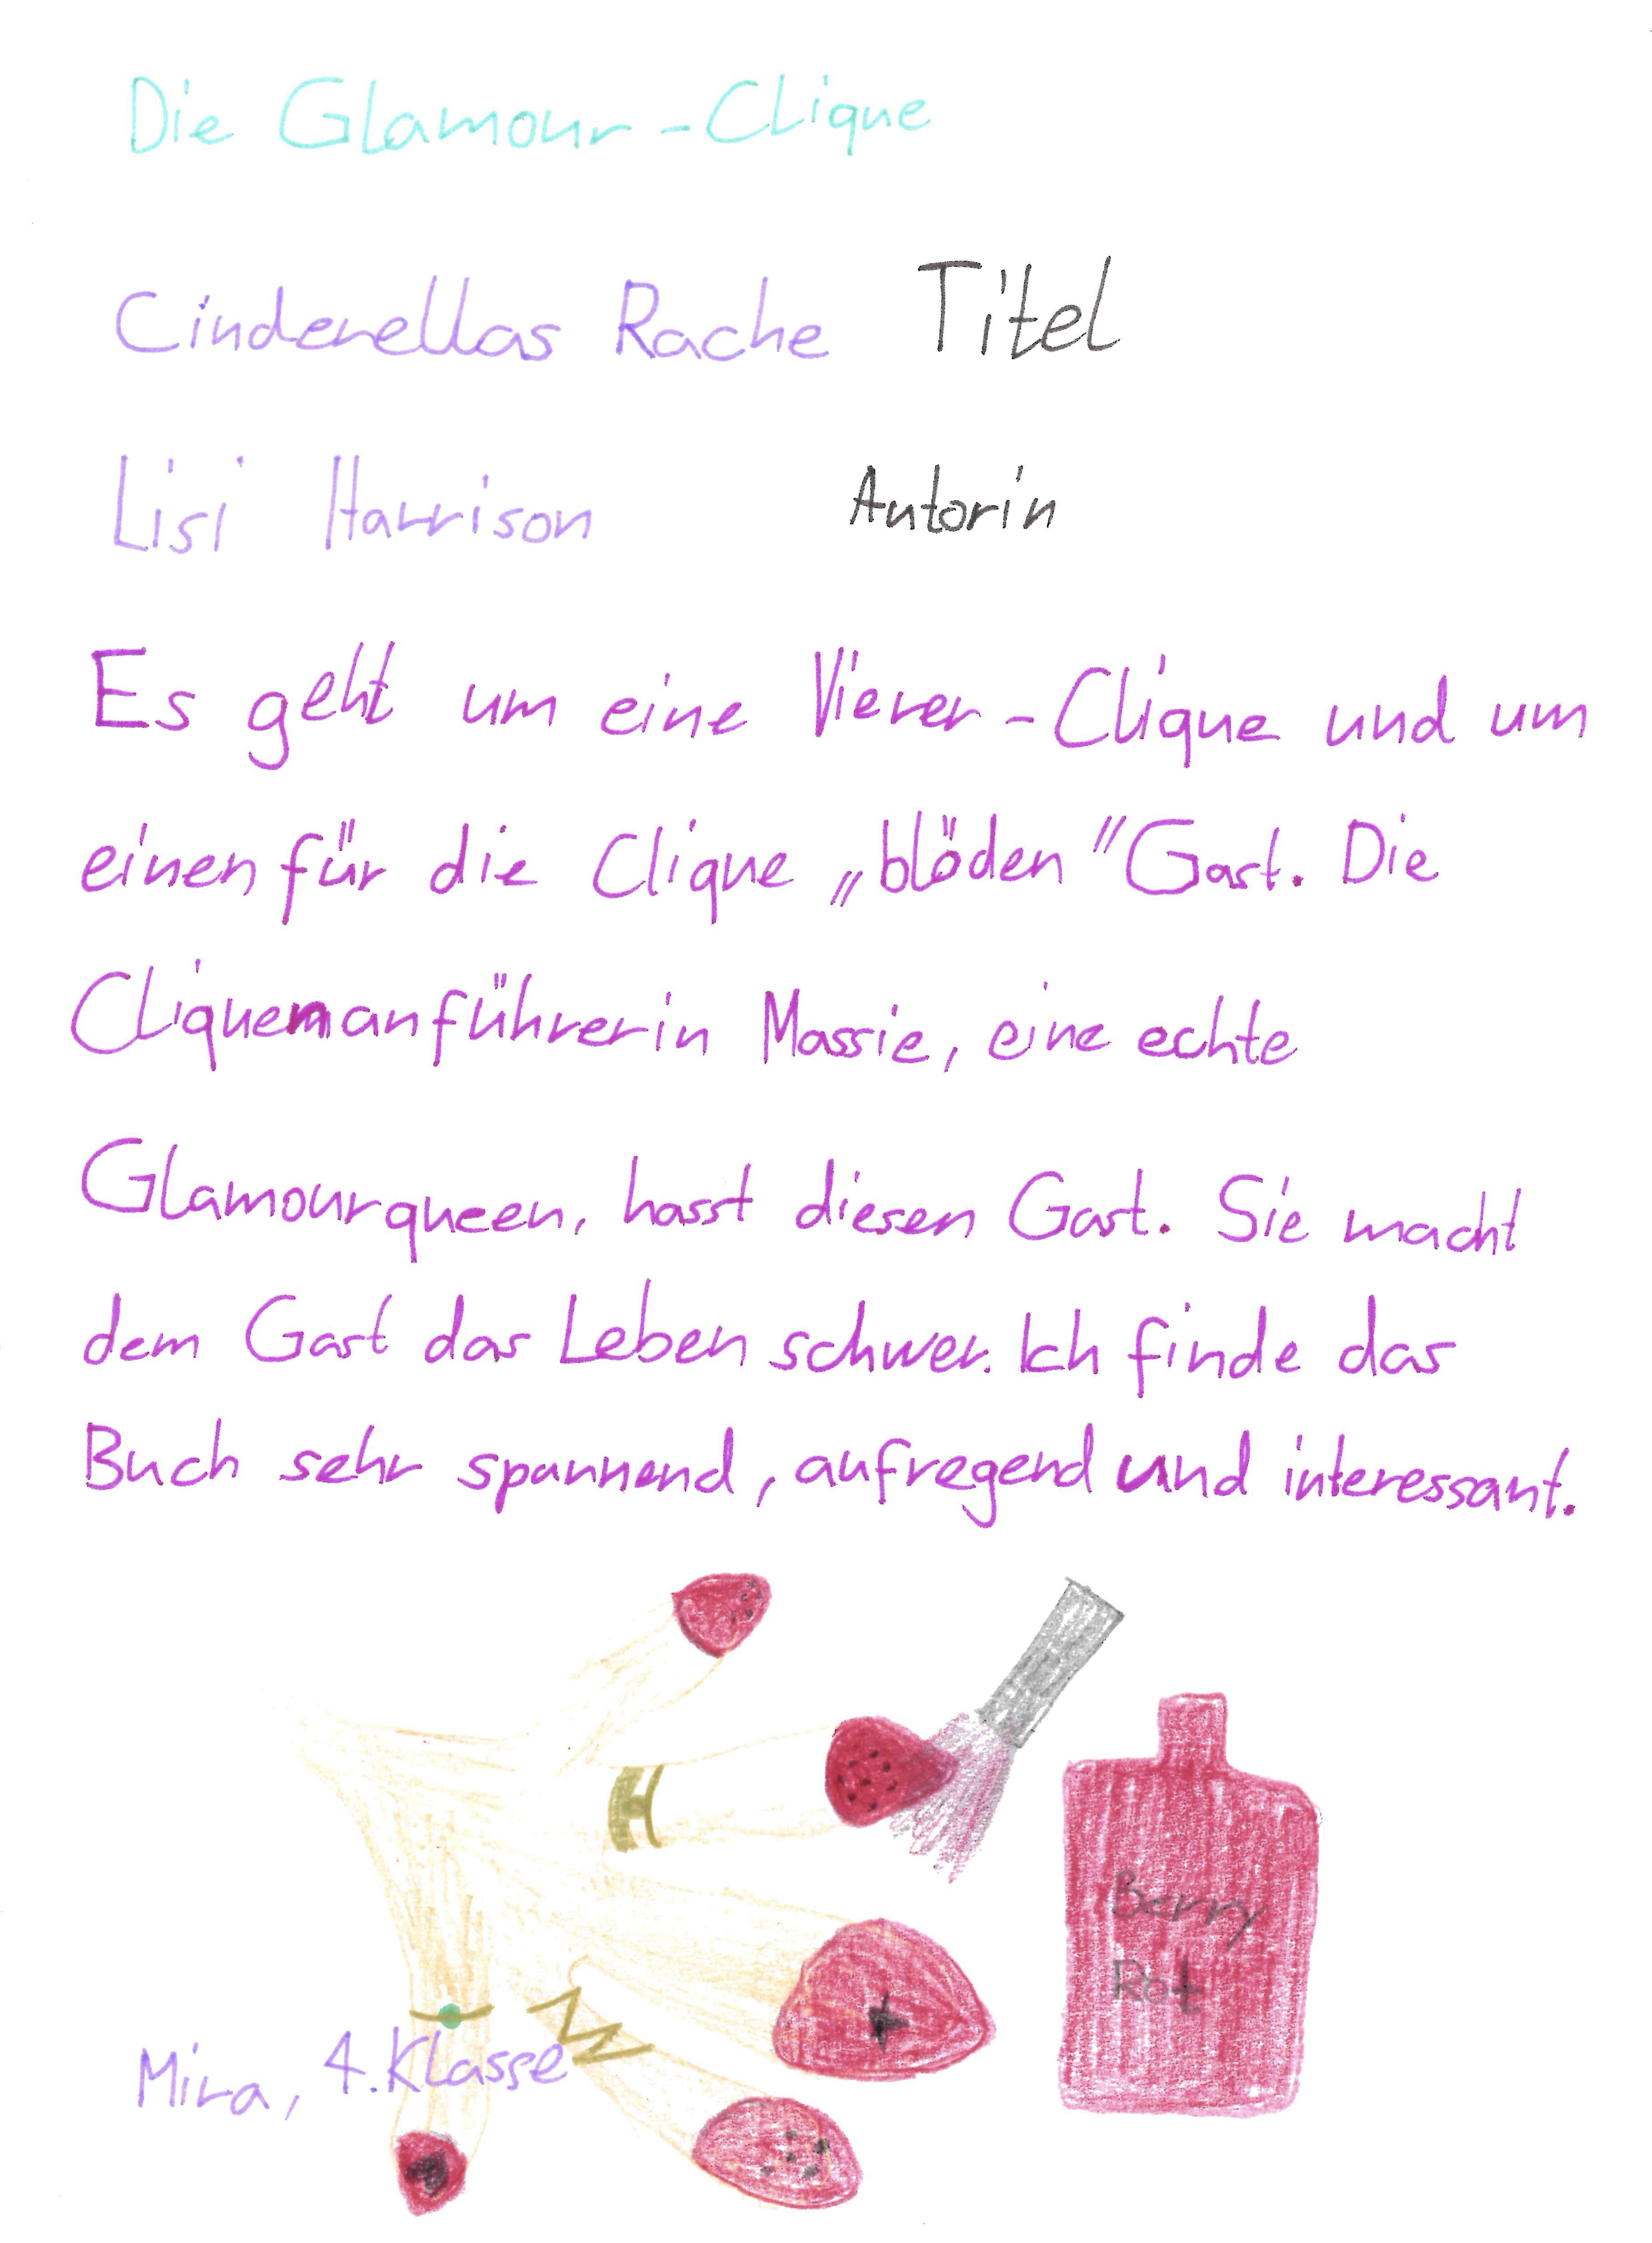 Die Glamour-Clique
Cinderellas Rache Titel
Lisi Harrison Autorin
Es geht um eine Vierer-Clique und um
einen für die Clique „blöden" Gast. Die
Cliquenanführerin Massie, eine echte
Glamourqueen, hasst diesen Gast. Sie macht
dem Gast das Leben schwer. Ich finde das
Buch sehr spannend, aufregend und interessant.
Berry
Rot
Mira, 4. Klasse